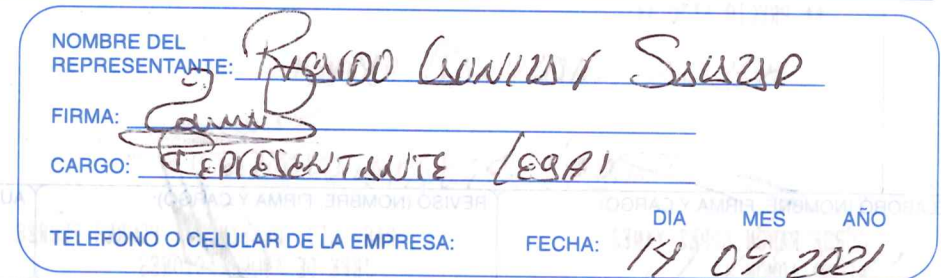 NOMBRE DEL
REPRESENTANTE: RICARDO GONZALEZ SALAZAR
FIRMA:
CARGO: REPRESENTANTE LEGAL
DIA MES AÑO
TELEFONO O CELULAR DE LA EMPRESA: FECHA: 14 09 2021